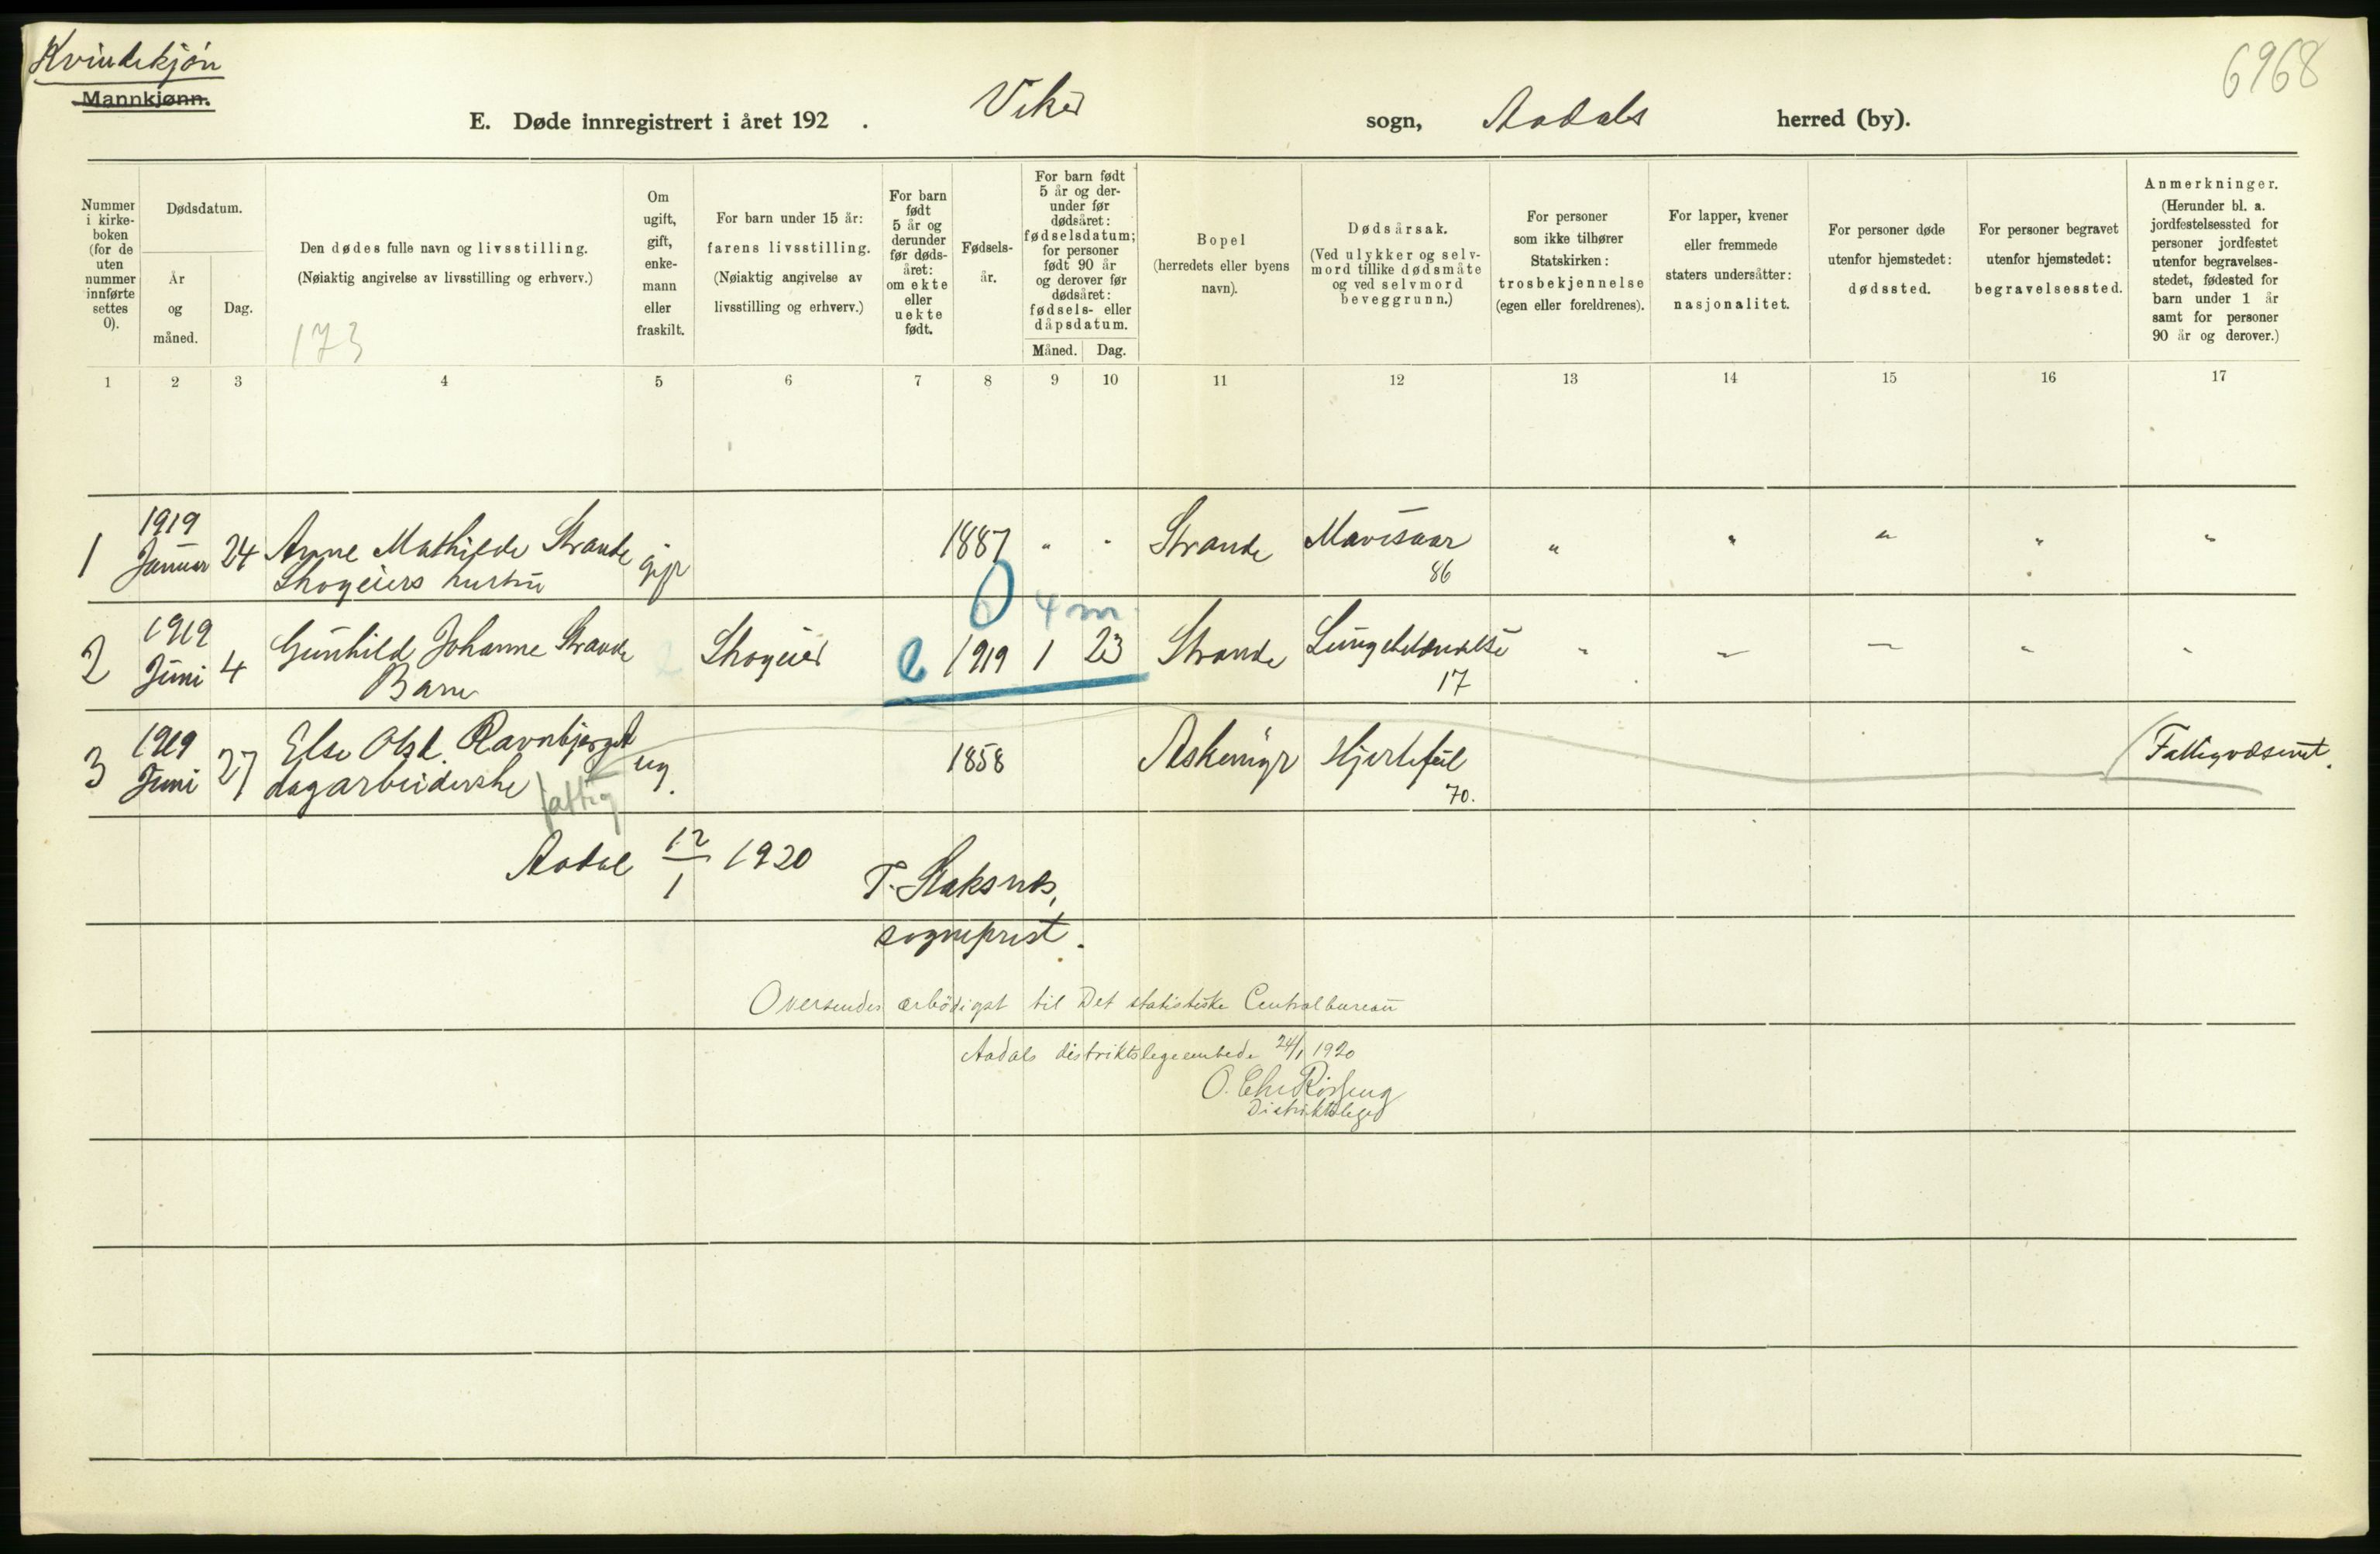 Kvindekjön
Mannkjønn.
6968
E. Døde innregistrert i året 192 .
Viker
sogn,
Aadals
herred (by).
Nummer i kirke-boken (for de uten nummer innførte settes 0).
Dødsdatum.
År og måned.
Dag.
Den dødes fulle navn og livsstilling.
(Nøiaktig angivelse av livsstilling og erhverv.)
173
Om ugift, gift, enke-mann eller fraskilt.
For barn under 15 år:
farens livsstilling.
(Nøiaktig angivelse av livsstilling og erhverv.)
For barn født 5 år og derunder før døds-året: om ekte eller uekte født.
Fødsels-år.
For barn født 5 år og der-under før dødsåret: fødselsdatum; for personer født 90 år og derover før dødsåret: fødsels- eller dåpsdatum.
Måned.
Dag.
Bopel
(herredets eller byens navn).
Dødsårsak.
(Ved ulykker og selv-mord tillike dødsmåte og ved selvmord beveggrunn.)
For personer som ikke tilhører Statskirken: trosbekjennelse (egen eller foreldrenes).
For lapper, kvener eller fremmede staters undersåtter: nasjonalitet.
For personer døde utenfor hjemstedet: dødssted.
For personer begravet utenfor hjemstedet: begravelsessted.
Anmerkninger.
(Herunder bl. a. jordfestelsessted for personer jordfestet utenfor begravelses-stedet, fødested for barn under 1 år samt for personer 90 år og derover.)
1 2 3 4 5 6 7 8 9 10 11 12 13 14 15 16 17
1919
1 Januar 24 Anne Mathilde Strande gift 1887 " " Strande Mavesaar " " " " "
Skogeiers hustru 86
0 4 m
1919
2 Juni 4 Gunhild Johanne Strande Skogeier e 1919 1 23 Strande Lungebetændelse " " " " "
Barn 17
1919
3 Juni 27 Else Olsd. Ravnbjerget ug. 1858 Askemyr Hjertefeil Fattigvæsenet.
dagarbeiderske fattig 70.
Aadal 12/1 1920
T. Staksnes,
sogneprest.
Oversendes ærbödigst til Det statistiske Centralbureau
Aadals distriktslegeembede 24/1 1920
O. Chr
Distriktslege